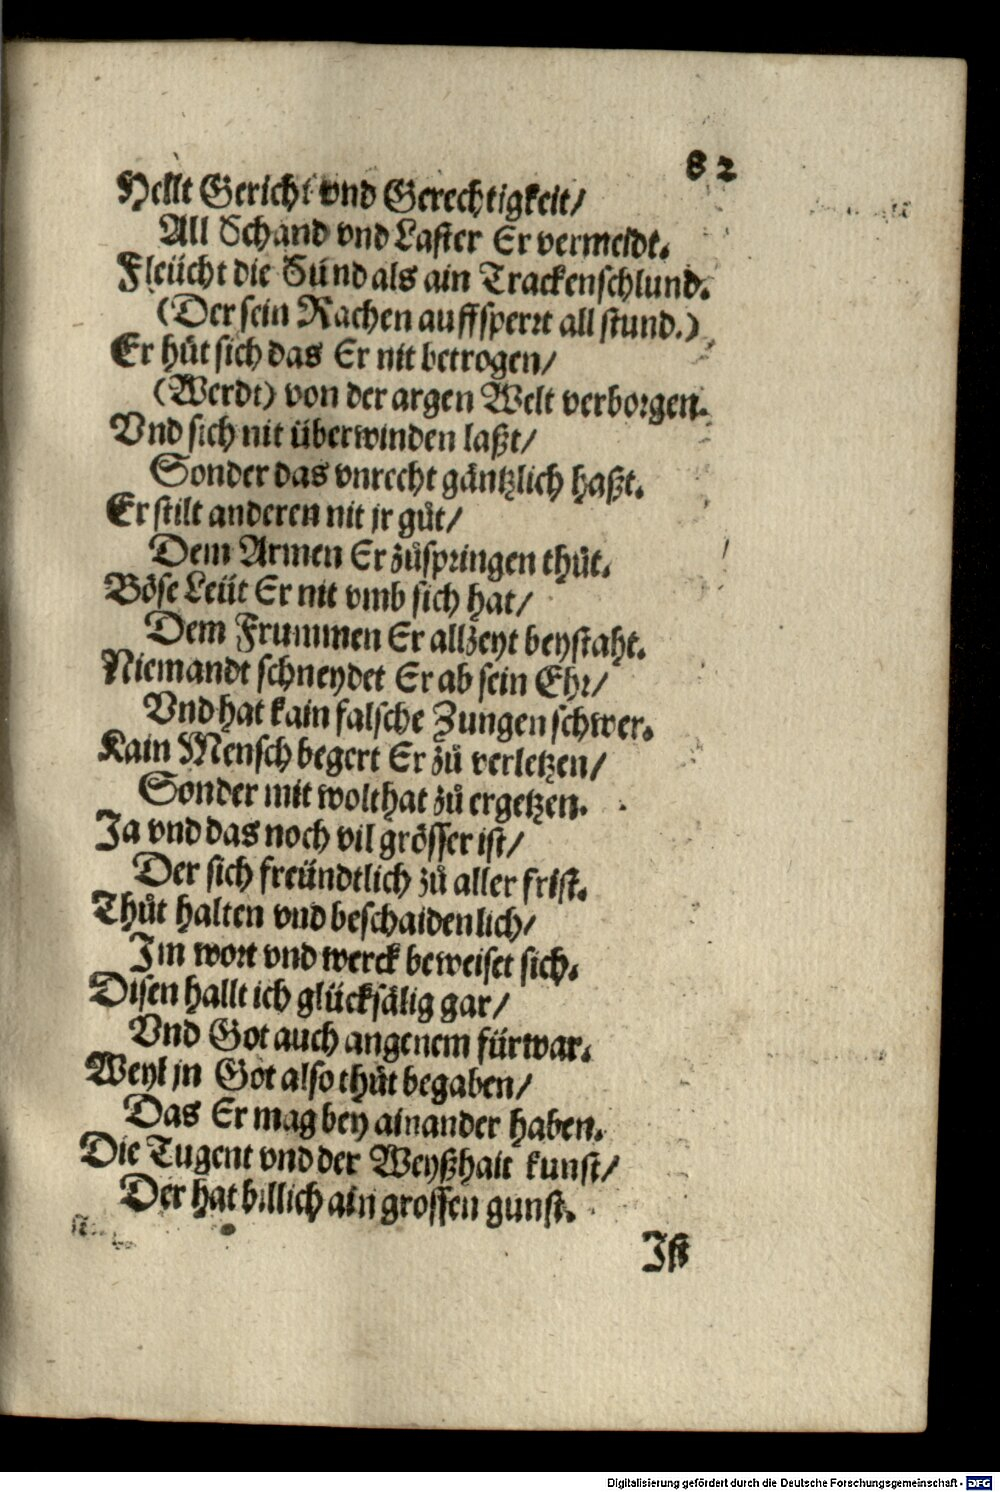 82
Hellt Gericht vnd Gerechtigkeit/
All Schand vnd Laster Er vermeidt.
Fleücht die Sünd als ain Trackenschlund.
(Der sein Rachen auffsperrt all stund.)
Er hüt sich das Er nit betrogen/
(Werdt) von der argen Welt verborgen.
Vnd sich nit überwinden laßt/
Sonder das vnrecht gäntzlich haßt.
Er stilt anderen nit jr gůt/
Dem Armen Er zůspringen thůt.
Böse Leüt Er nit vmb sich hat/
Dem Frummen Er allzeyt beystaht.
Niemandt schneydet Er ab sein Ehr/
Vnd hat kain falsche Zungen schwer.
Kain Mensch begert Er zů verletzen/
Sonder mit wolthat zů ergetzen.
Ja vnd das noch vil grösser ist/
Der sich freündtlich zů aller frist.
Thůt halten vnd beschaidenlich/
Im wort vnd werck beweiset sich.
Disen hallt ich glücksälig gar/
Vnd Got auch angenem fürwar.
Weyl jn Got also thůt begaben/
Das Er mag bey ainander haben.
Die Tugent vnd der Weyßhait kunst/
Der hat billich ain grossen gunst.
Ist
Digitalisierung gefördert durch die Deutsche Forschungsgemeinschaft - DFG